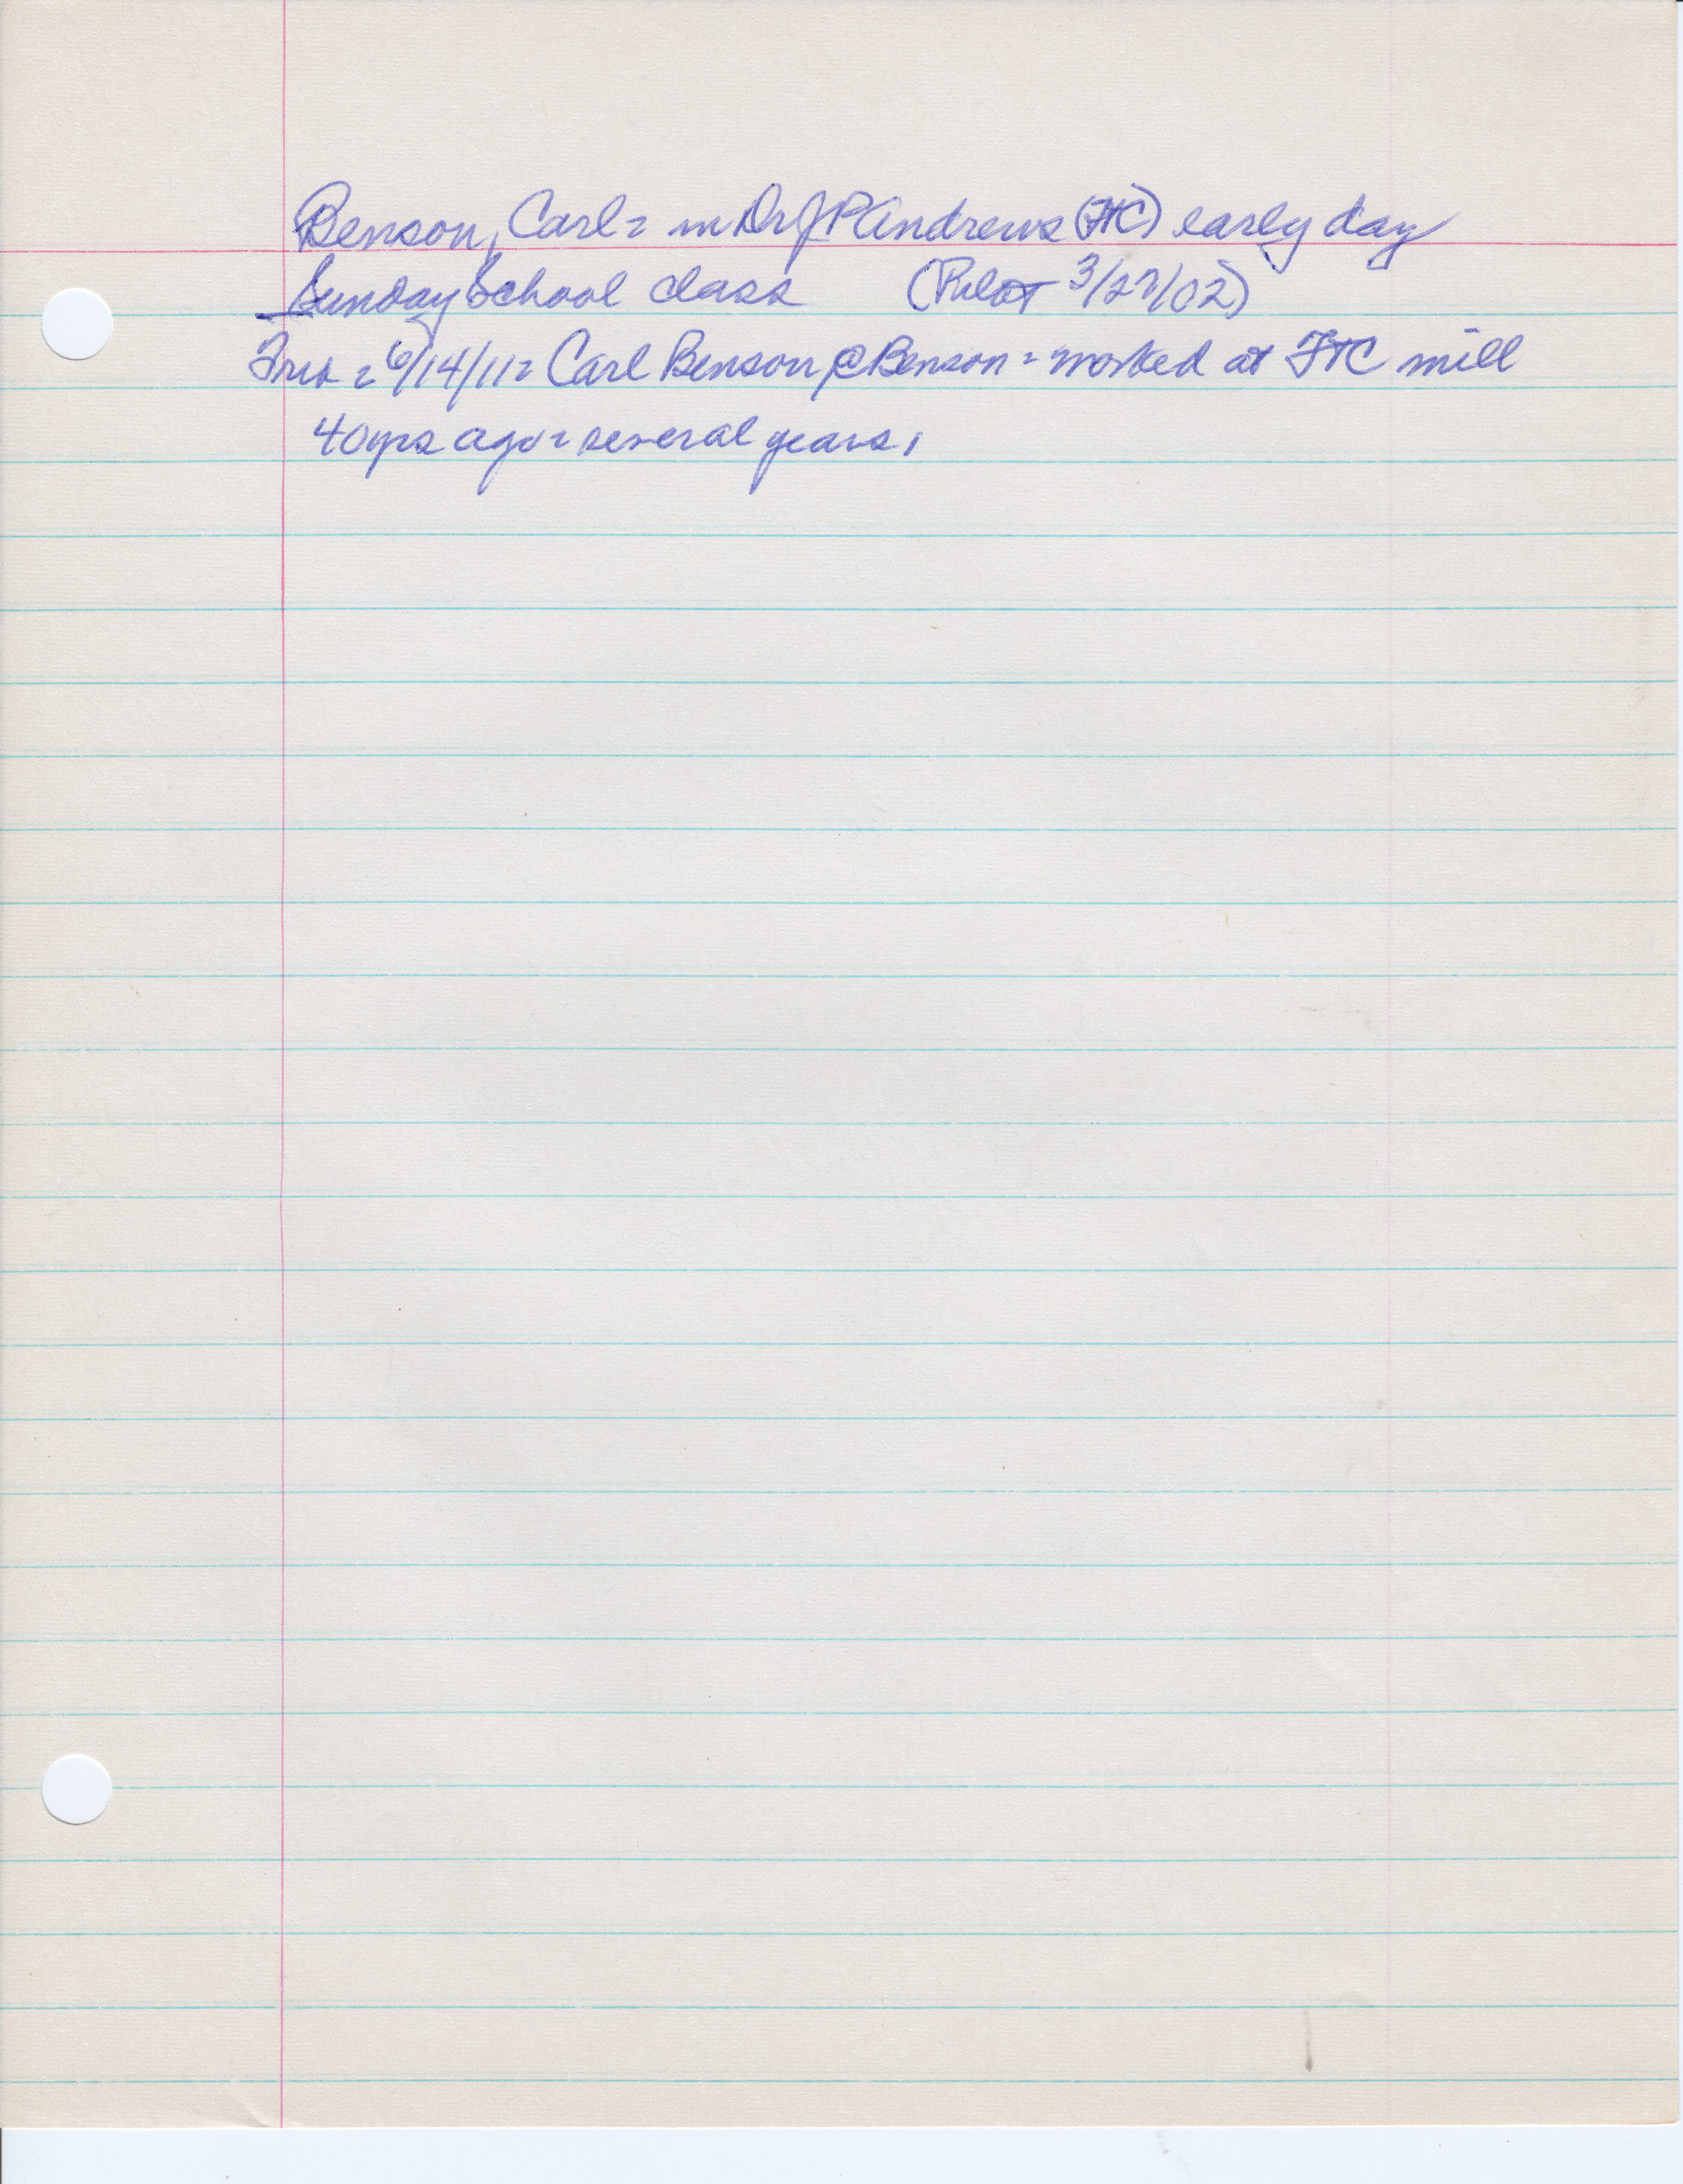 Benson, Carl = in Dr J P Andrews (FTC) early day
Sunday School class (Pilot 3/27/02)
= 6/14/11 = Carl Benson, @ Benson = worked at FTC mill
40 yrs ago = several years,